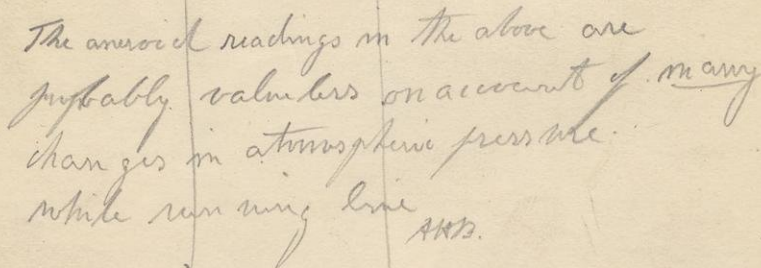 The aneroid readings in the above are
probably valueless on account of many
changes in atmospheric pressure.
while running line
AHB.